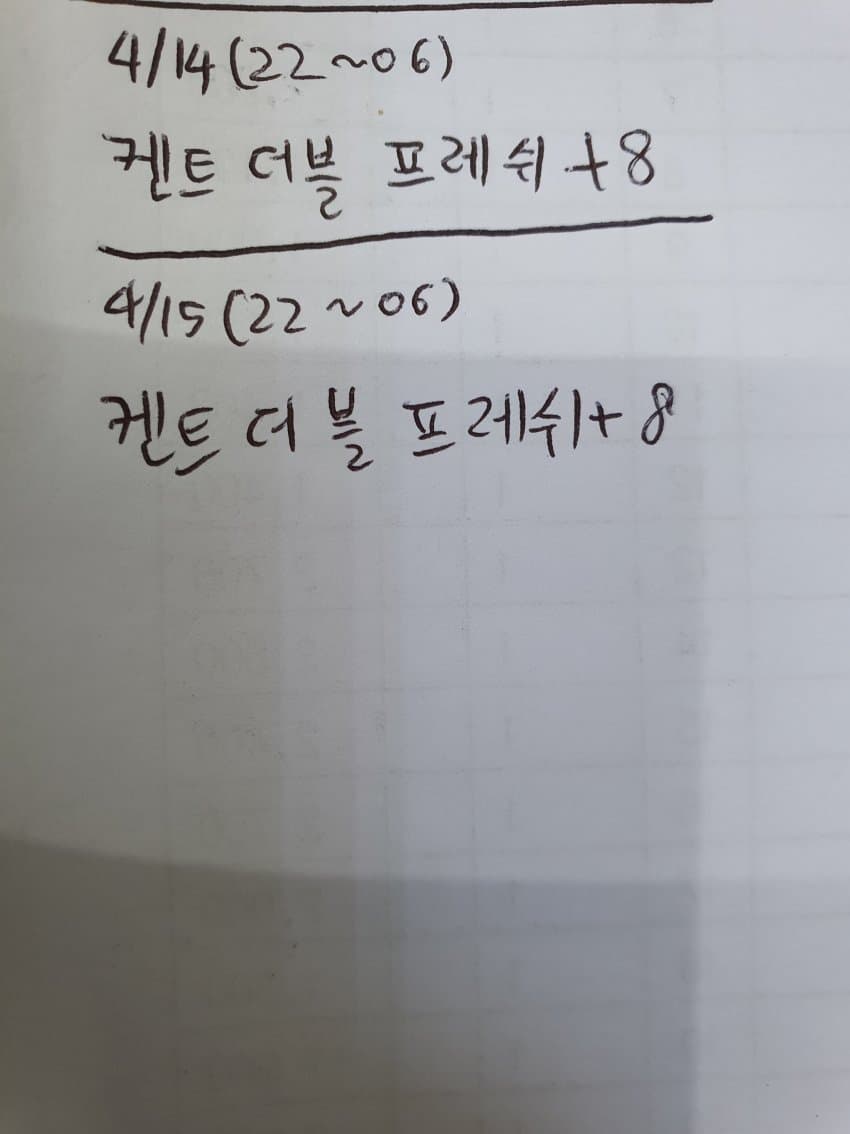 4/14(22~06)
켄트 더블 프레쉬+8
4/15(22~06)
켄트 더블 프레쉬+8